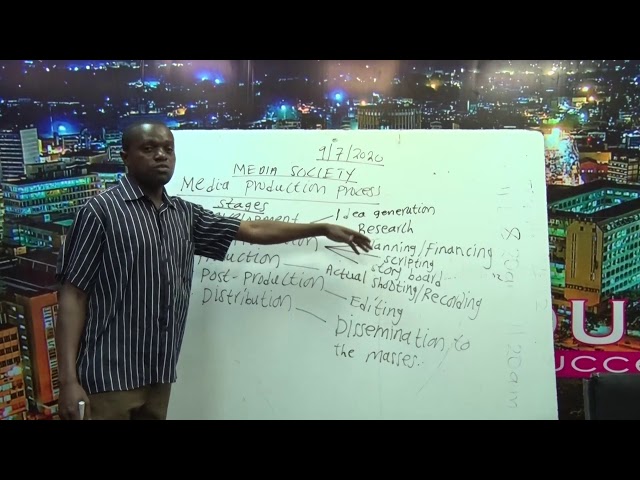 9/7/2020
MEDIA SOCIETY
Media production process
stages
Idea generation
Research
/Financing
scripting
story board
Actual shooting/Recording
Post-production
Editing
Distribution
Dissemination to
the masses.